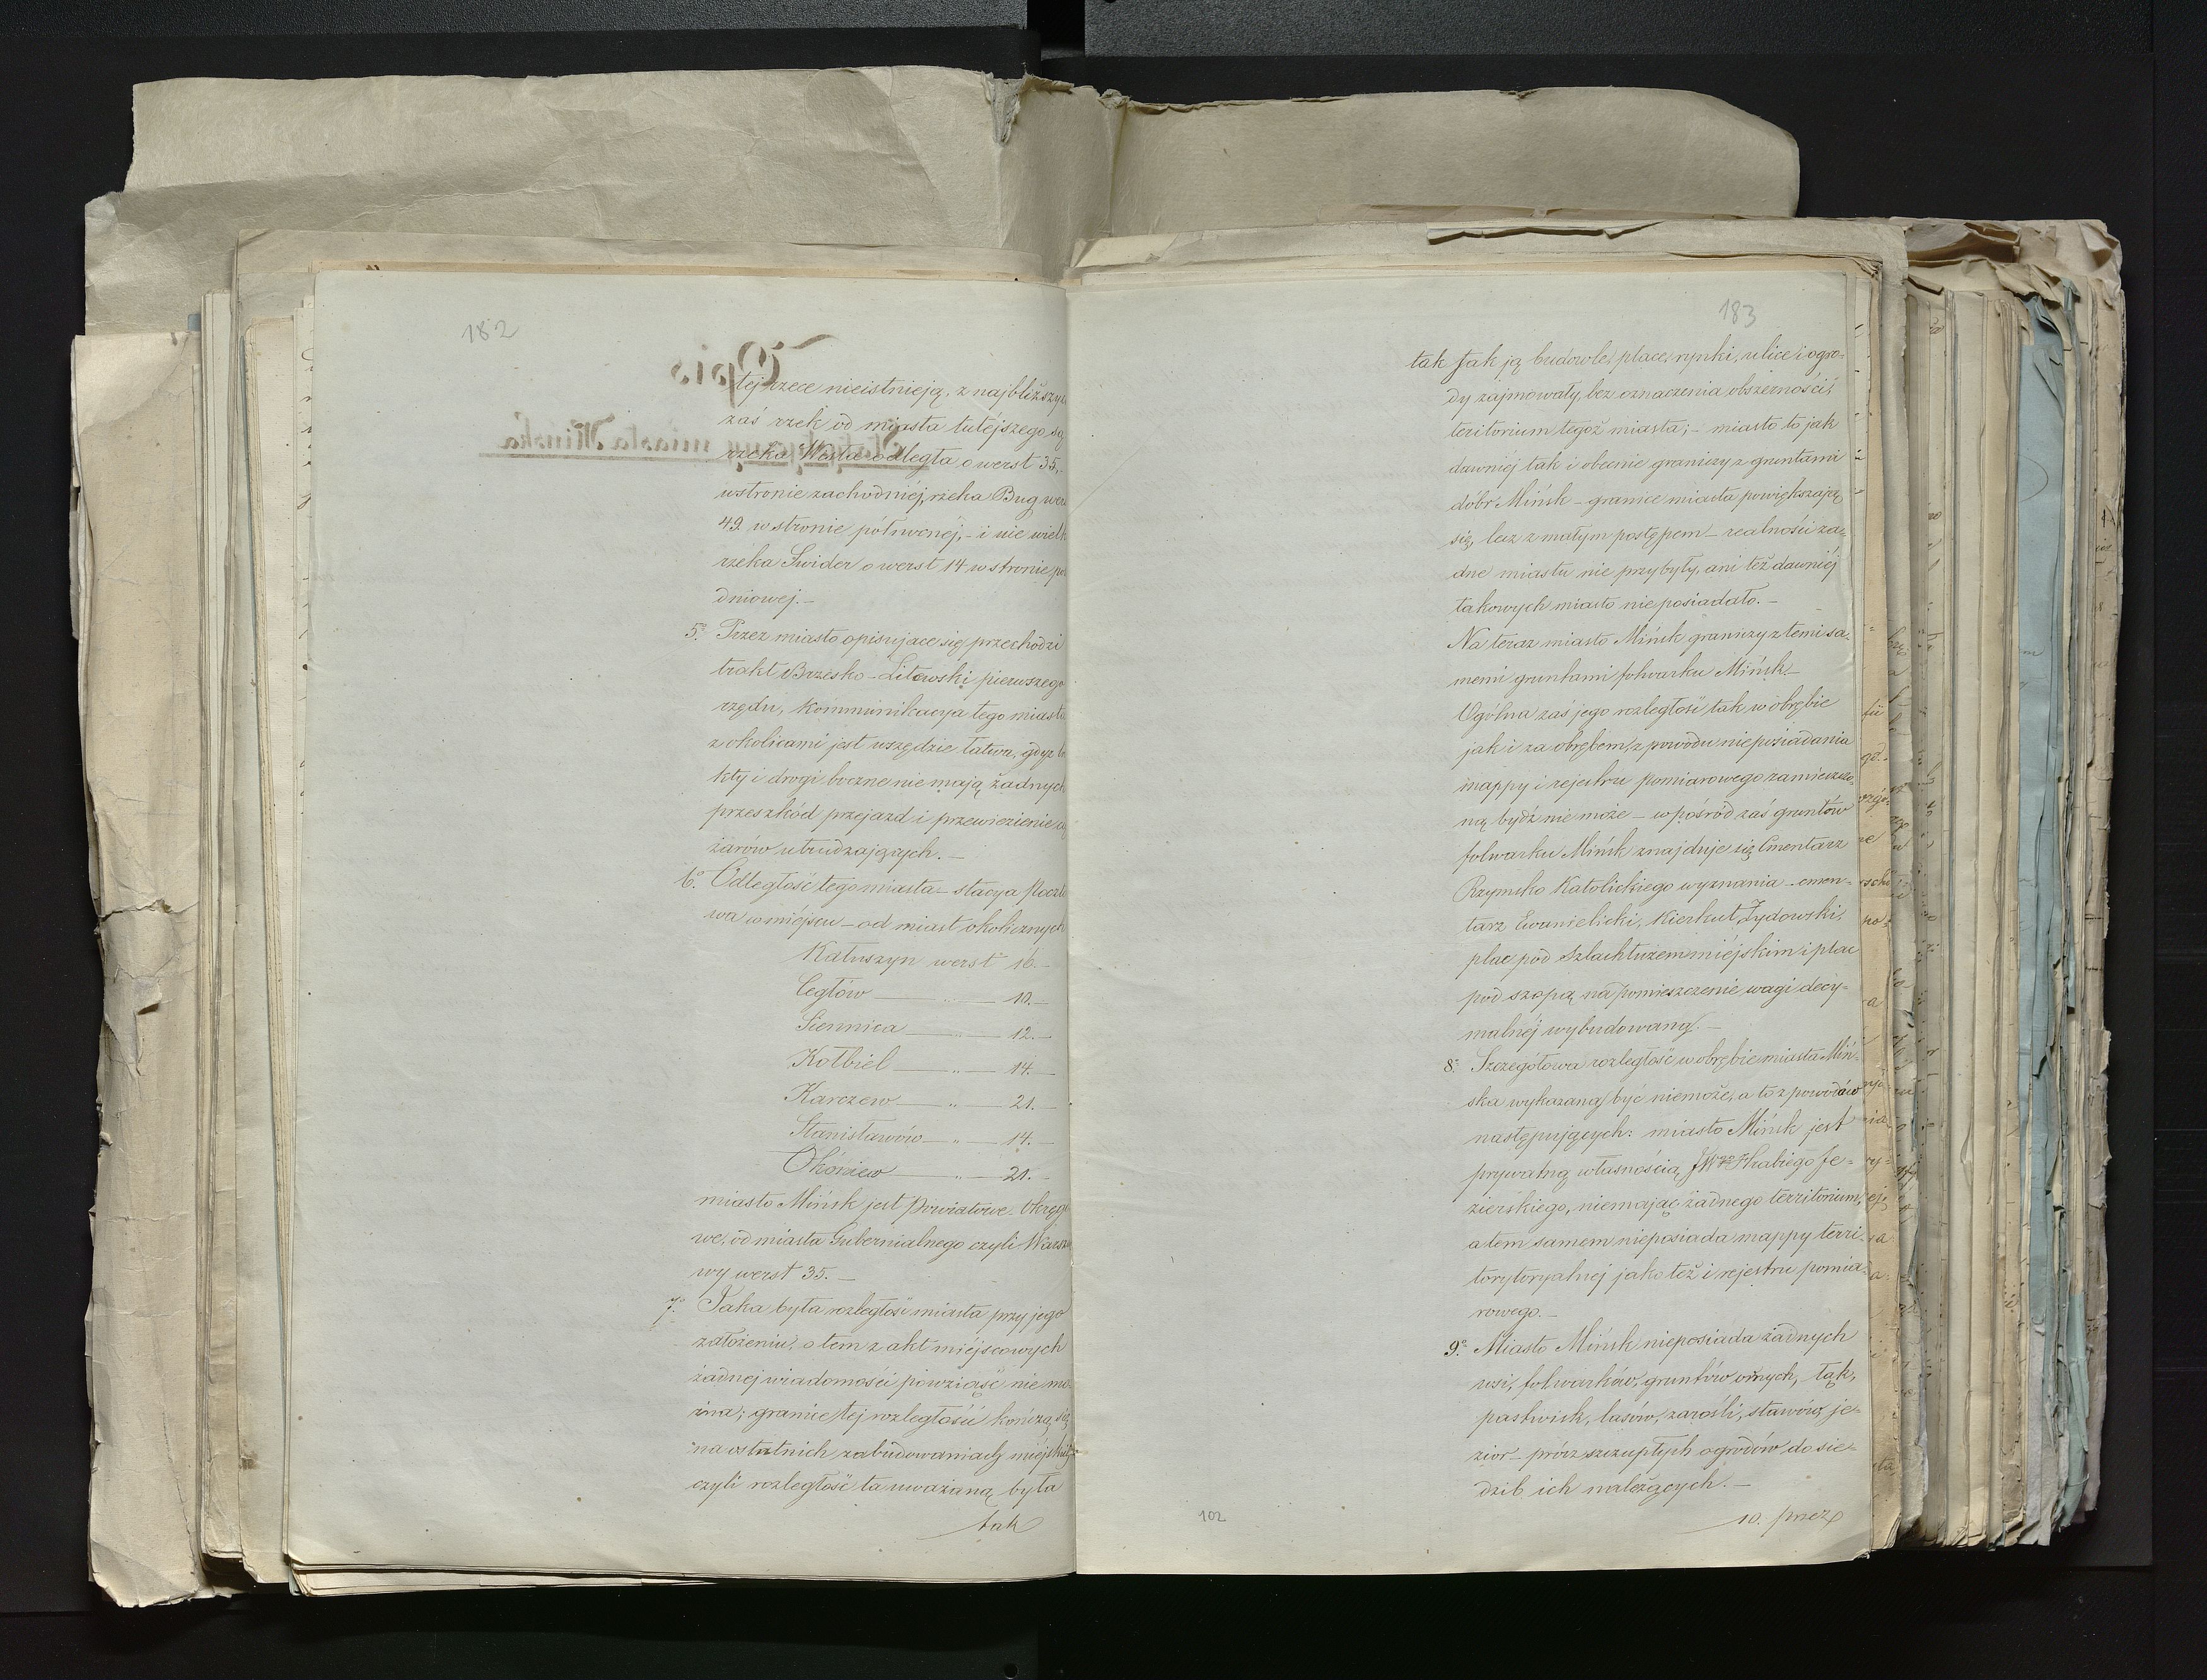 182
tej rzece nieistnieją, z najbliższych
zaś rzek od miasta tutéjszego są
rzeka Wisła odległa o werst 35,
w stronie zachodniéj, rzeka Bug wer
49 w stronie północnéj, - i nie wielk
rzeka Świder o werst 14 w stronie po
dniowej. -
5° Przez miasto opisujące się przechodzi
trakt Brzesko-Litewski pierwszego
rzędu, kommunikacya tego miasta
z okolicami jest wszędzie łatwa, gdyż
kty i drogi boczne nie mają żadnych
przeszkód przejazd i przewiezienie
żarów utrudzających. -
6° Odległość tego miasta - stacya Poczto
wa w miéjscu - od miast okolicznych
Kałuszyn werst 16. -
Cegłów - " - 10. -
Siennica - " - 12. -
Kołbiel - " - 14. -
Karczew - " - 21. -
Stanisławów - " - 14. -
Okóniew - " - 21. -
miasto Mińsk jest Powiatowe. Okręgo
we, od miasta Gubernialnego czyli Warsza
wy werst 35. -
7° Jaka była rozległość miasta przy jego
założeniu, o tem z akt miéjscowych
żadnej wiadomości powziąść nie mo-
żna; granice tej rozległości kończą się
na ostatnich zabudowaniach miejskich
czyli rozległość ta uważaną była
tak
183
tak jak ją budowle, place, rynki, ulice i ogro=
dy zajmowały, bez oznaczenia obszerności,
teritorium tegoż miasta; - miasto to jak
dawniéj tak i obecnie graniczy z gruntami
dóbr Mińsk - granice miasta powiększają
się, lecz z małym postępem - realności ża=
dne miastu nie przybyły, ani też dawniéj
takowych miasto nieposiadało. -
Na teraz miasto Mińsk graniczy z temi sa-
memi gruntami folwarku Mińsk. -
Ogólna zaś jego rozległość tak w obrębie
jak i za obrębem, z powodu nieposiadania
mappy i rejestru pomiarowego zamieszczo-
ną bydź nie może - wpośród zaś gruntów
folwarku Mińsk znajduje się Cmentarz
Rzymsko Katolickiego wyznania - cmen=
tarz Ewanielicki, Kierkut Żydowski,
plac pod Szlachtuzem miéjskim i plac
pod szopą na pomieszczenie wagi decy=
malnéj wybudowaną. -
8° Szczegółowa rozległość w obrębie miasta Miń-
ska wykazaną być niemoże, a to z powodów
następujących: miasto Mińsk jest
prywatną własnością JW° Hrabiego Je=
zierskiego, niemając żadnego territorium,
a tem samem nieposiada mappy terri-
torytoryalnej jako też i rejestru pomia-
rowego. -
9° Miasto Mińsk nieposiada żadnych
wsi, folwarków, gruntów ornych, łąk,
pastwisk, lasów, zarośli, stawów, je=
zior - prócz szczupłych ogrodów do sie=
dzib ich należących. -
10. przez
102